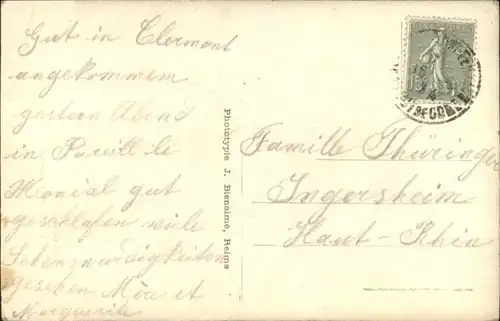 Gut in Clermont
angekommen
gestern Abend
in Pareille le
Monial gut
geschlafen viele
Sehenzwurdigkeiten
gesehen Mère et
Marguerite
Phototypie J. Bienaimé, Reims
Famille Thuringer
Ingersheim
Haut-Rhin